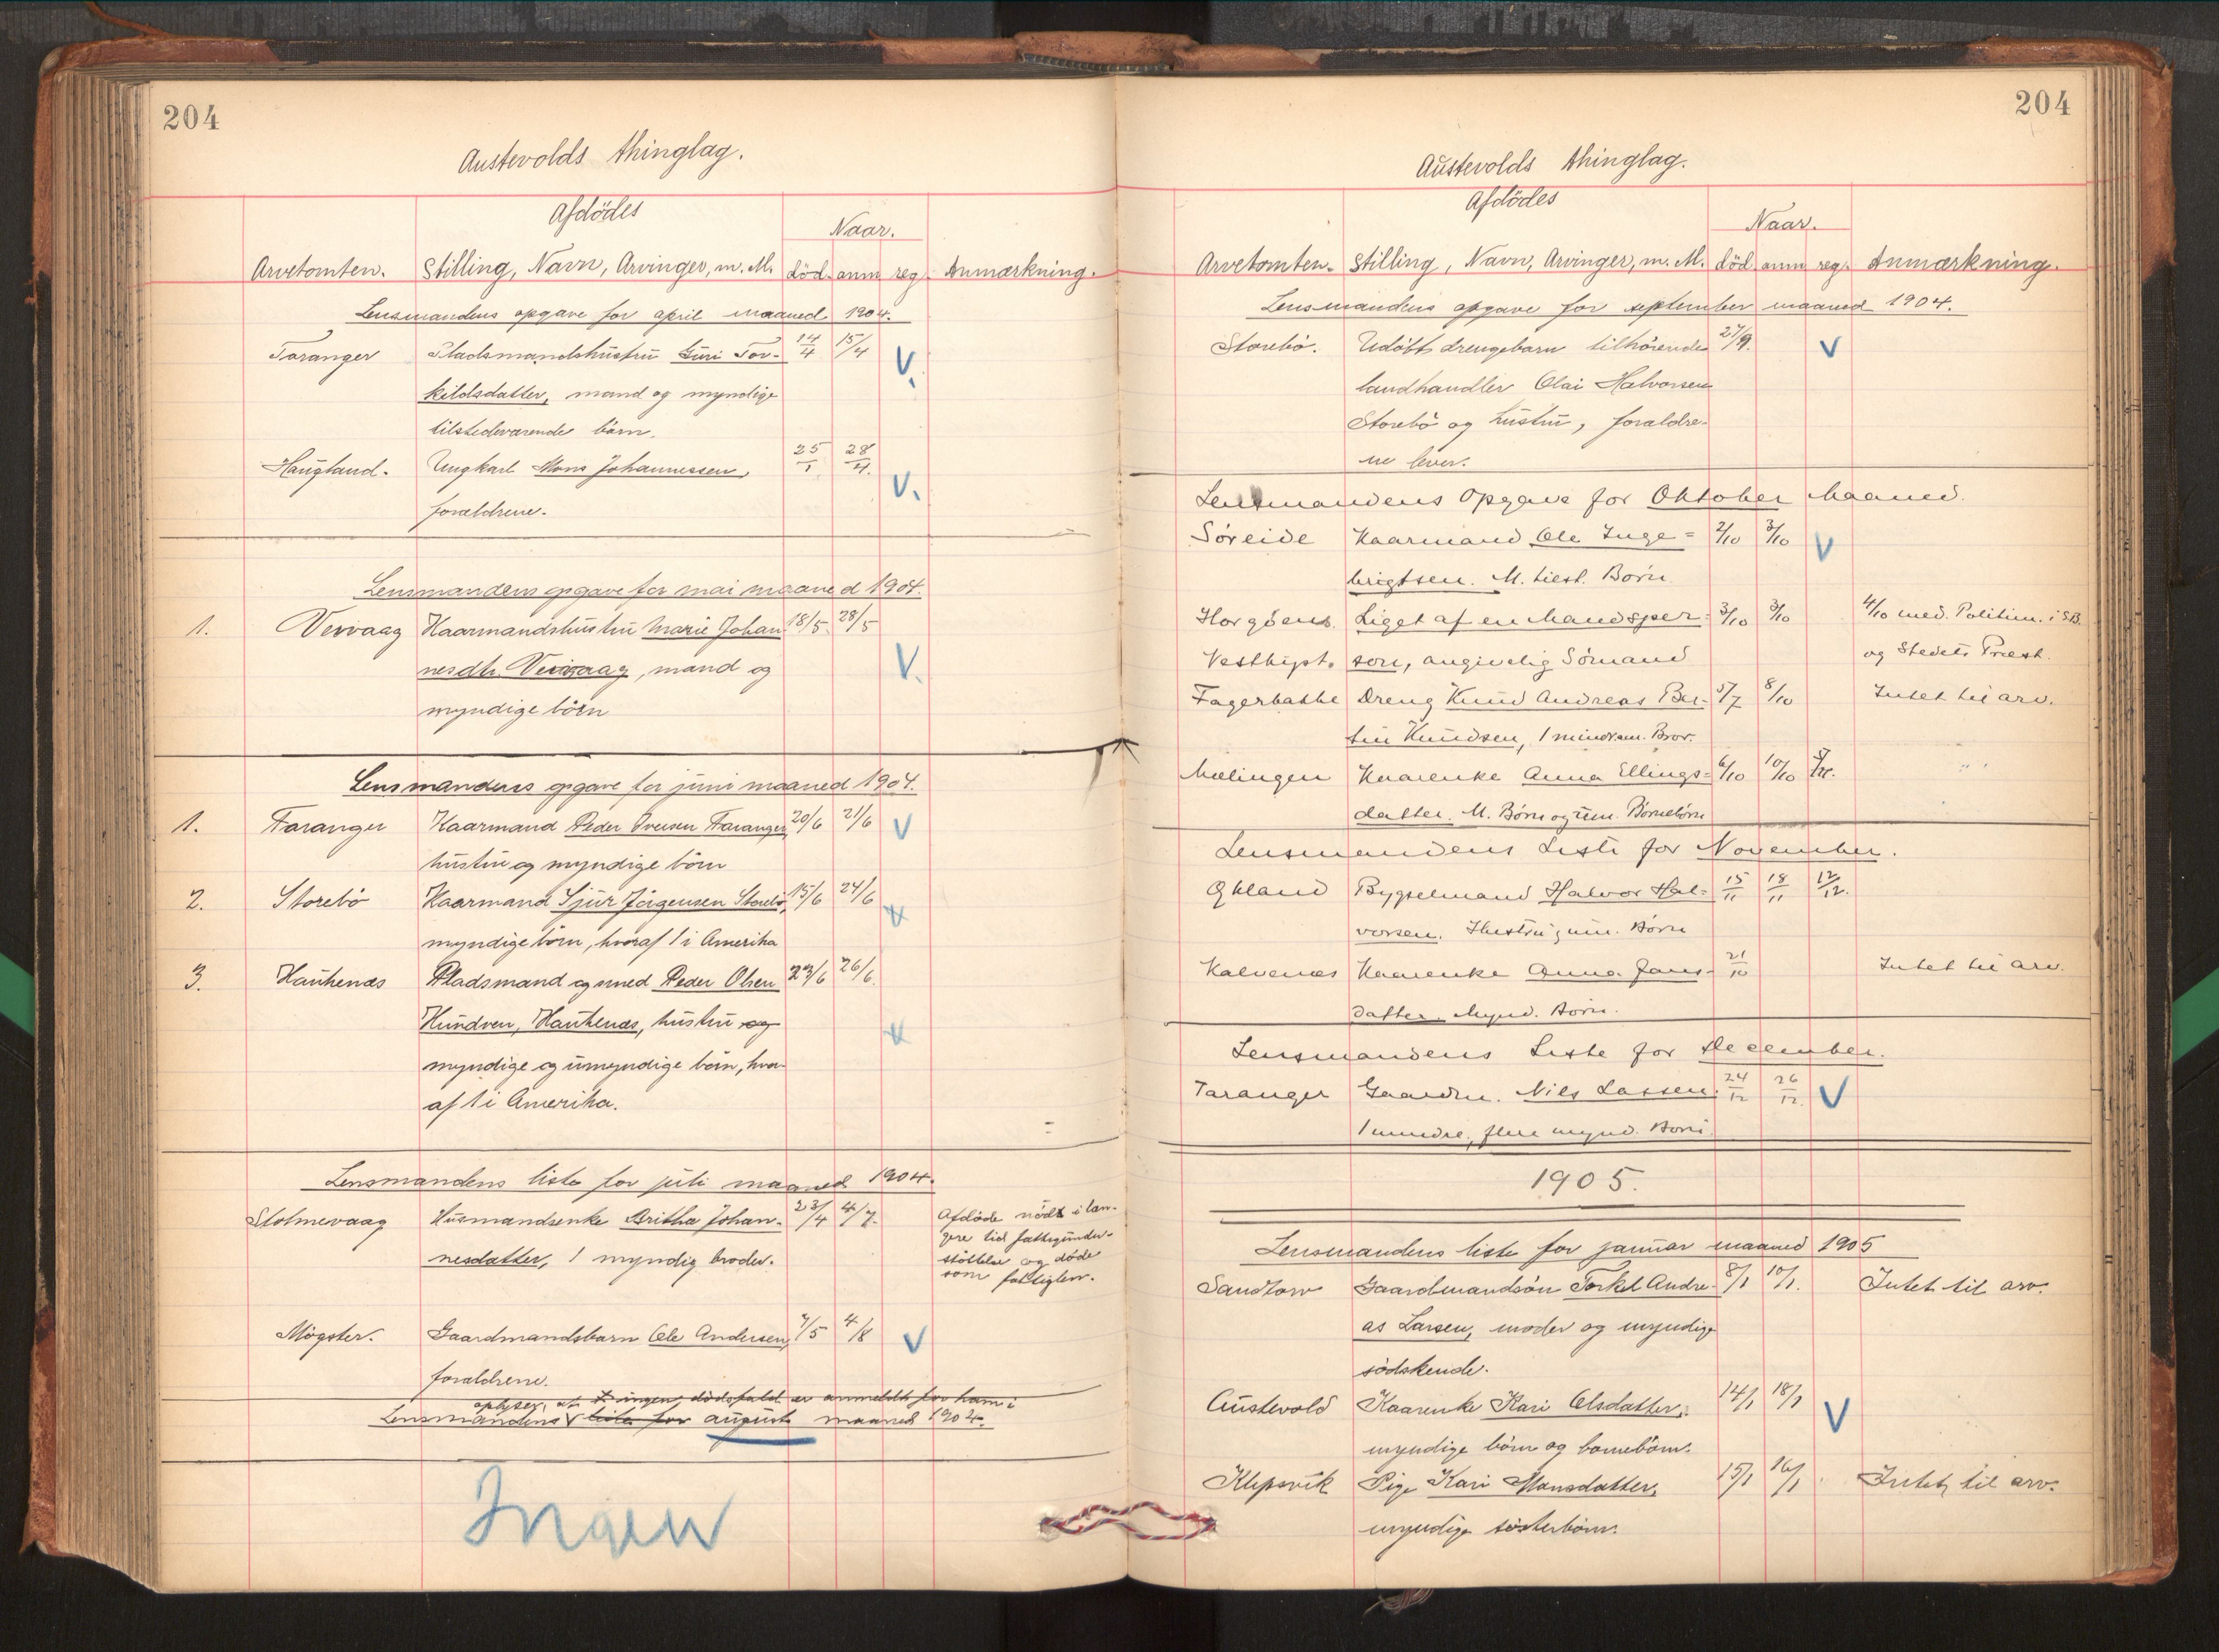 204
Austevolds thinglag.
Afdödes
Naar.
Arvetomten. Stilling, Navn, Arvinger, m. M. död. anm. reg. Anmærkning.
Lensmandens opgave for april maaned 1904.
Taranger Pladsmandshustru Guri Tor- 14/4 15/4 V.
kildsdatter, mand og myndige
tilstedeværende börn.
Haugland. Ungkarl Mons Johannessen, 25/1 28/4. V.
forældrene.
Lensmandens opgave for mai maaned 1904.
1. Vervaag Kaarmandshustru Marie Johan 18/5 28/5
nesdtr. Vervaag, mand og V.
myndige börn
Lensmandens opgave for juni maaned 1904.
1. Taranger Kaarmand Peder Iversen Taranger 20/6 21/6 V
hustru og myndige börn
2. Storebö Kaarmand Sjur Jörgensen Storebö, 15/6 24/6
myndige börn, hvoraf 1 i Amerika
3. Haukenæs Pladsmand og smed Peder Olsen 23/6 26/6.
Hundven, Haukenæs, hustru og
myndige og umyndige börn, hvor-
af 1 i Amerika.
Lensmandens liste for juli maaned 1904.
Stolmevaag Husmandsenke Britha Johan- 23/4 4/7. Afdöde nödt i læn-
gere tid fattigunder-
nesdatter, 1 myndig broder. stöttelse og döde
som fattiglem.
Mögster. Gaardmandsbarn Ole Andersen, 7/5 4/8 V
forældrene.
oplyser, at ingen dödsfald er anmeldt for ham i
Lensmandens liste for august maaned 1904.
Ingen
204
Austevolds thinglag.
Afdödes
Naar.
Arvetomten. Stilling, Navn, Arvinger, m. M. död. anm. reg. Anmærkning.
Lensmandens opgave for september maaned 1904.
Storebö. Udöbt drengebarn tilhörende 27/9. V
landhandler Olai Halvorsen
Storebö og hustru, forældre-
ne lever.
Lensmandens Opgave for Oktober Maaned.
Søreide Kaarmand Ole Inge= 2/10 3/10 V
brigtsen. M. tilst. Børn.
Horgøens Liget af en Mandsper= 3/10 3/10 4/10 med. Politim. i SB.
Vesthipt. son, angivelig Sømand og Stedets Præst.
Fagerbakke Dreng Knud Andreas Ber- 5/7 8/10 Intet til arv.
tin Knudsen, 1 mindreaa. Bror.
Mælingen Kaarenke Anna Ellings= 6/10 10/10 " "
datter. M. Børn og um. Børnebørn
Lensmandens Liste for November.
Økland Bygselmand Halvor Hal= 15/11 18/11 12/12.
vorsen. Hustru, um. Børn
Kalvenes Kaarenke Anna Jans- 21/10 Intet til arv.
datter. Mynd. Børn.
Lensmandens Liste for December.
Taranger Gaardm. Nils Lassen. 24/12 26/12. V
1 mindre, flere mynd. Børn.
1905.
Lensmandens liste for januar maaned 1905
Sandtorv Gaardmandsön Torkel Andre- 8/1 10/1. Intet til arv.
as Larsen, moder og myndige
södskende.
Austevold Kaarenke Kari Olsdatter, 14/1 18/1 V
myndige börn og bornebörn.
Klepsvik Pige Kari Monsdatter, 15/1 16/1 Intet til arv.
myndige sösterbörn.